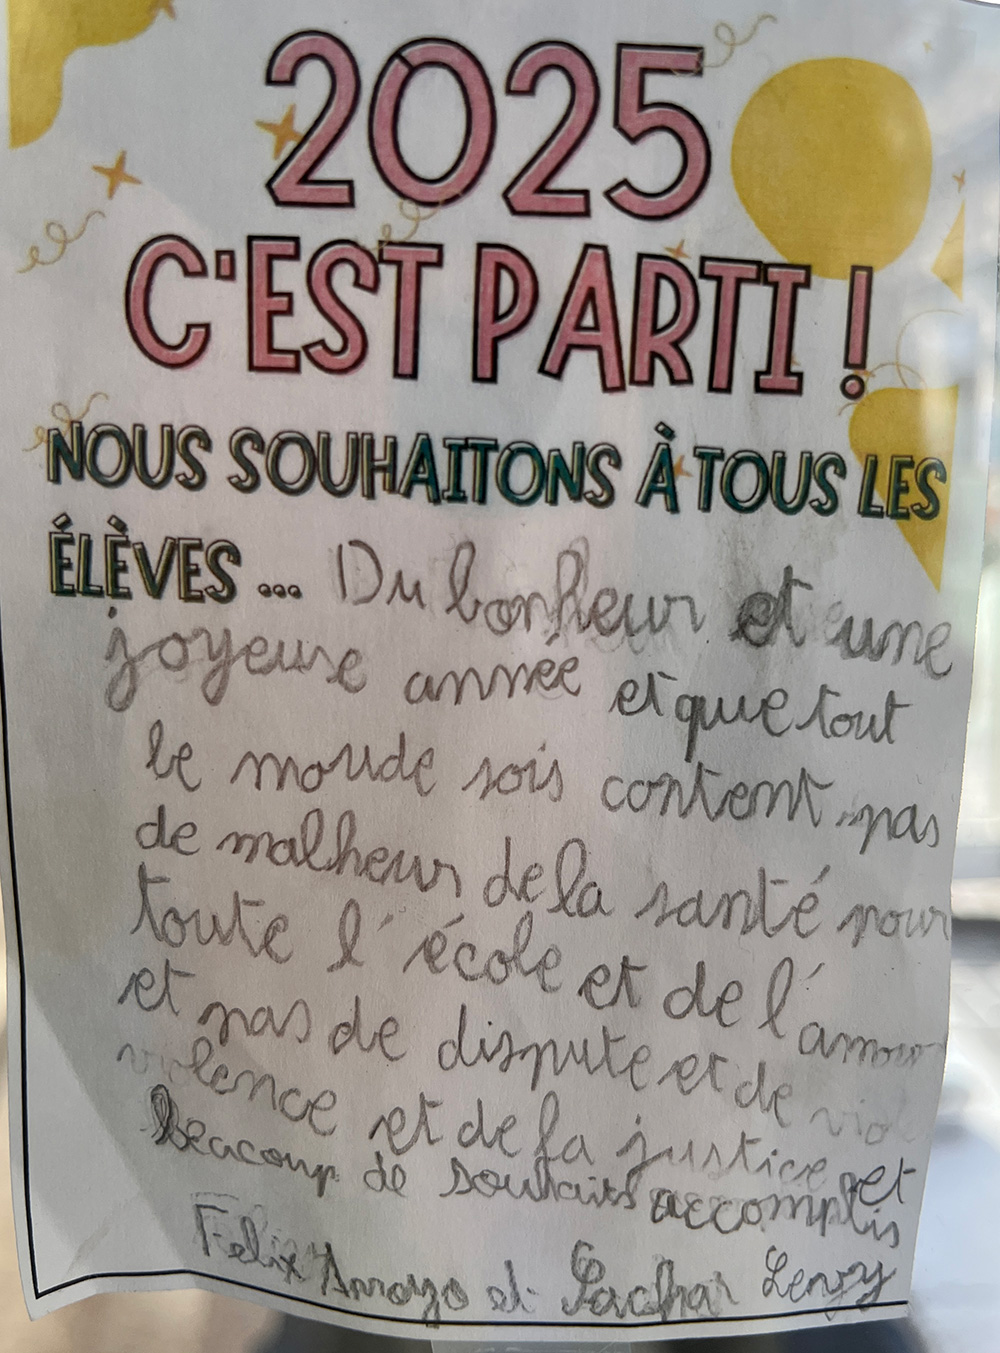 2025
C'EST PARTI !
NOUS SOUHAITONS À TOUS LES
ÉLÈVES ... Du bonheur et une
joyeuse année et que tout
le monde sois content pas
de malheur de la santé pour
toute l'école et de l'amour
et pas de dispute et de viole
violence et de la justice et
Beacoup de souhaits accomplis
Felix Arroyo et Sachar Lenzy